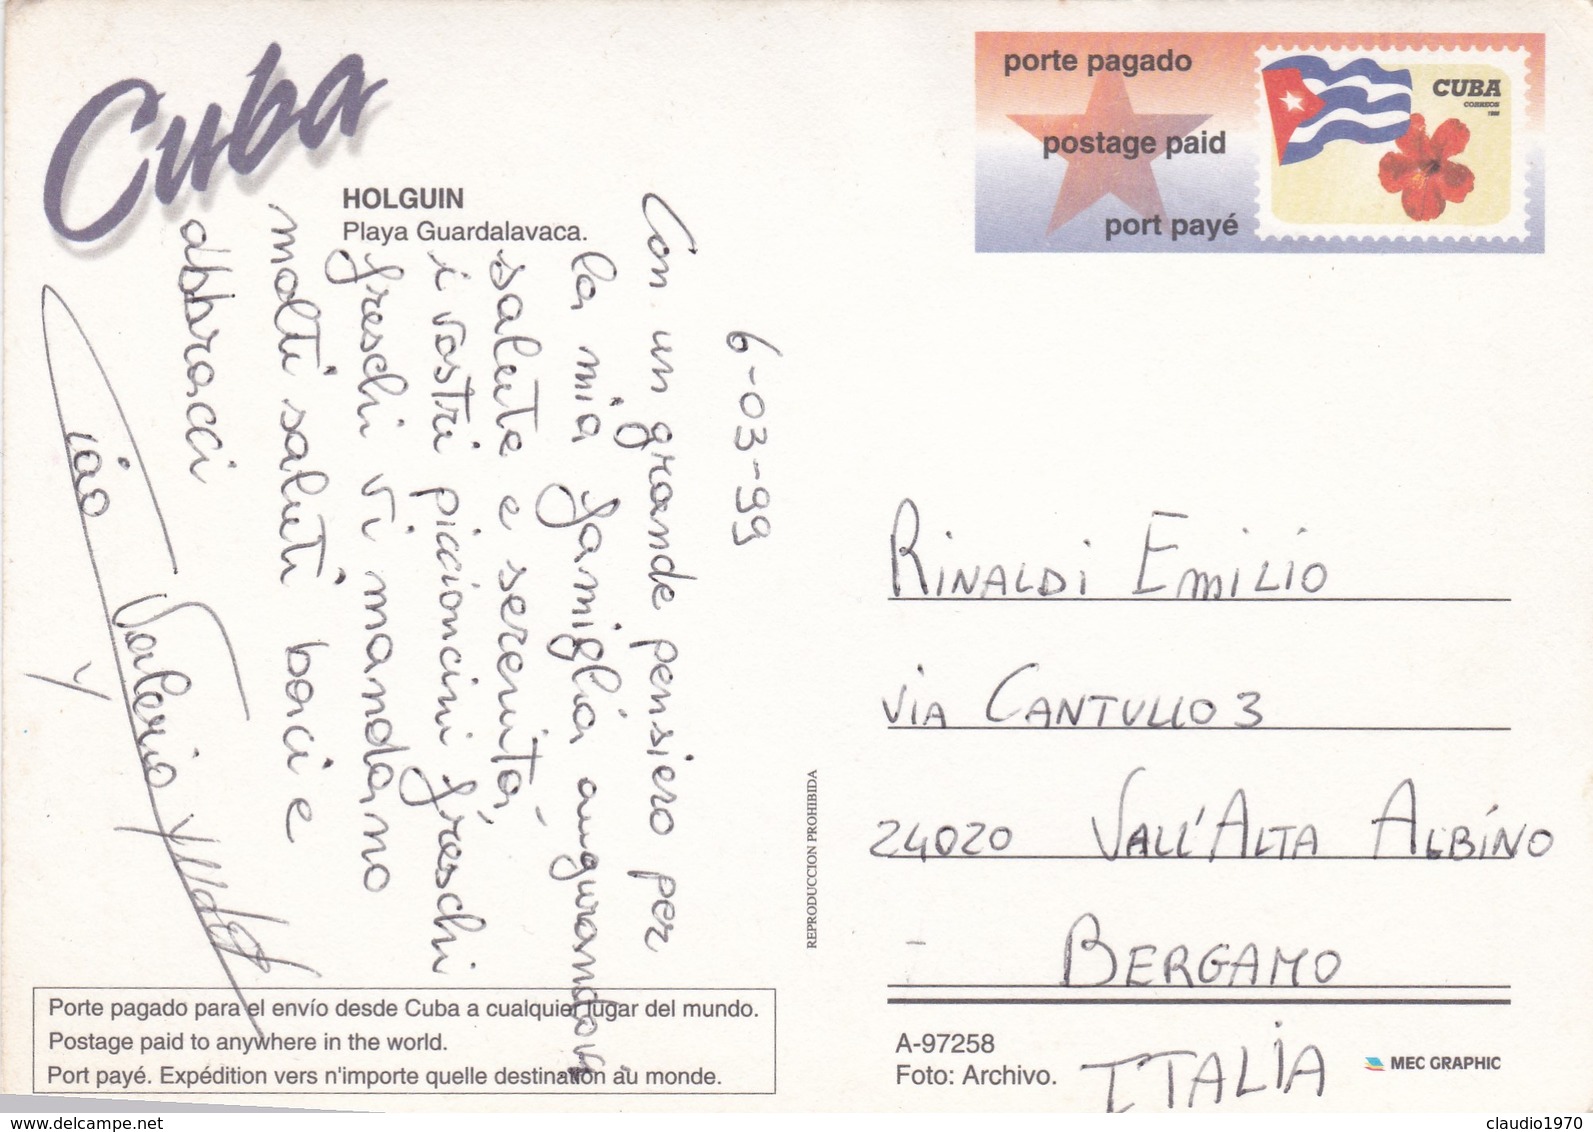 Cuba
HOLGUIN
Playa Guardalavaca.
porte pagado
postage paid
port payé
CUBA
CORREOS
6-03-99
Con un grande pensiero per
la mia famiglia augurandovi
salute e serenità,
i vostri piccioncini freschi
freschi vi mandano
molti saluti baci e
abbracci
Ciao Valerio
RINALDI EMILIO
VIA CANTULLO 3
24020 VALL'ALTA ALBINO
BERGAMO
ITALIA
REPRODUCCION PROHIBIDA
Porte pagado para el envío desde Cuba a cualquier lugar del mundo.
Postage paid to anywhere in the world.
Port payé. Expédition vers n'importe quelle destination au monde.
A-97258
Foto: Archivo.
MEC GRAPHIC
delcampe.net
claudio1970